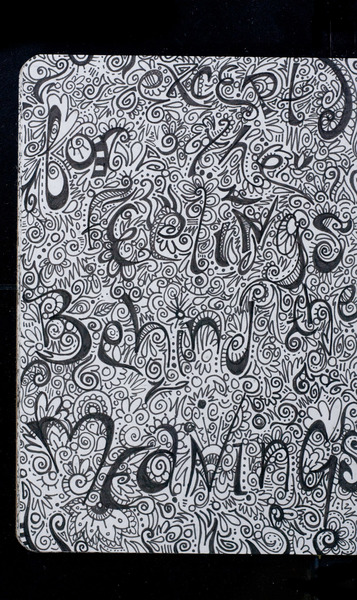 except
for the
Feelings
Behind the
Meanings